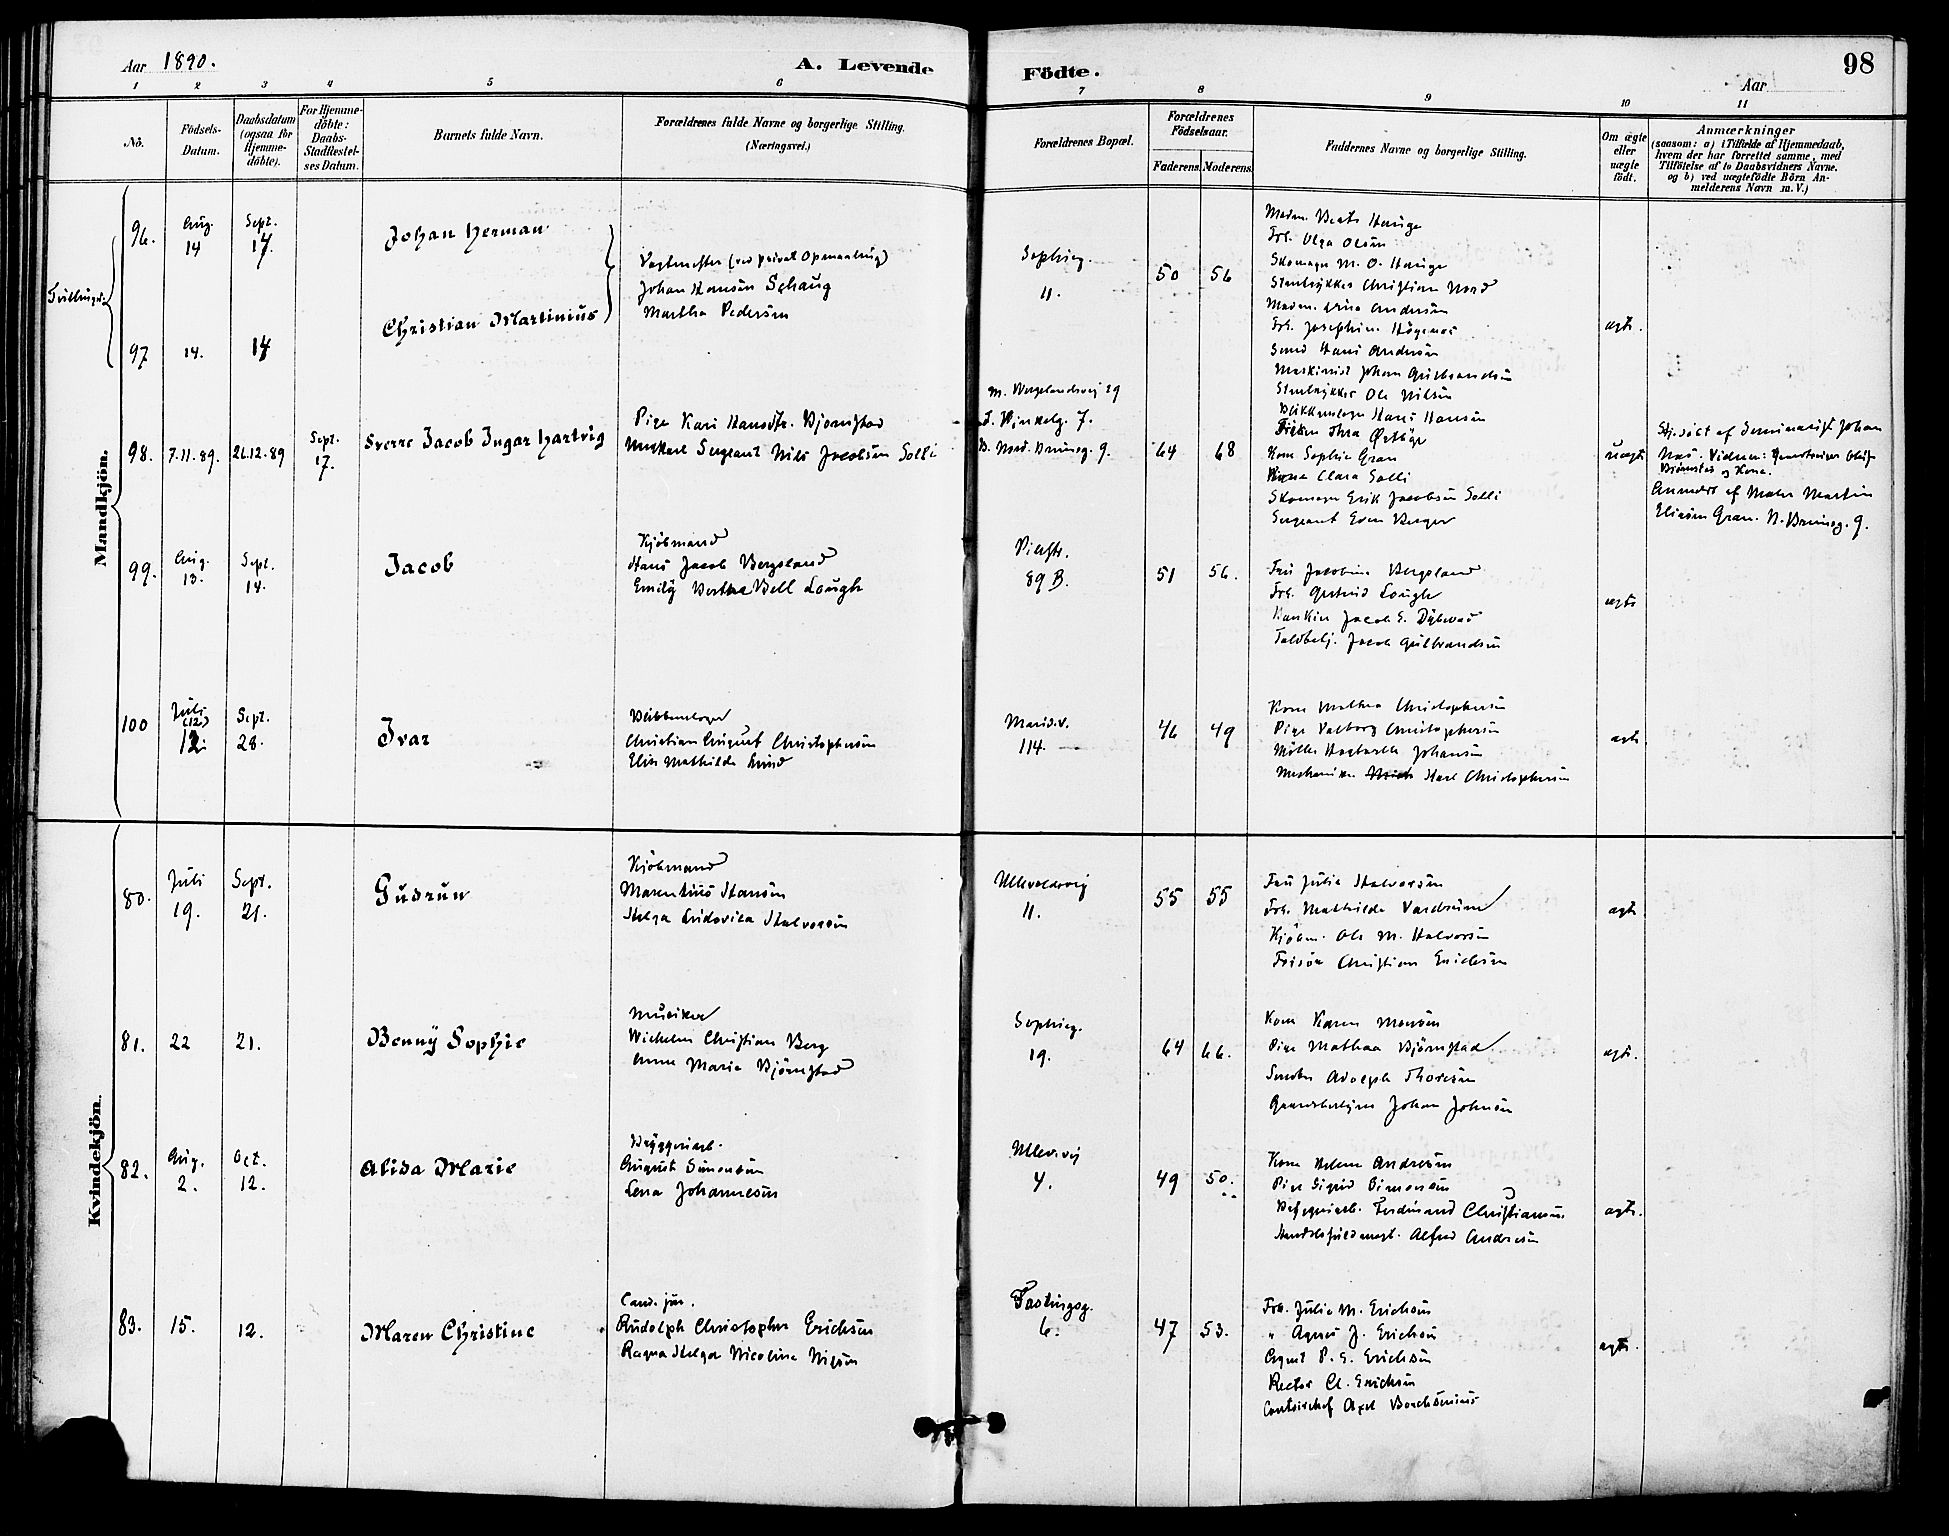 Aar 1890.
A. Levende
Födte.
Aar
98
1 2 3 4 5 6 7 8 9 10 11
No.
Födsels-
Datum.
Daabsdatum
(ogsaa for
Hjemme-
döbte).
For Hjemme-
döbte:
Daabs-
Stadfestel-
ses Datum.
Barnets fulde Navn.
Forældrenes fulde Navne og borgerlige Stilling.
(Næringsvei.)
Forældrenes Bopæl.
Forældrenes
Födselsaar.
Faderens. Moderens.
Faddernes Navne og borgerlige Stilling.
Om ægte
eller
uægte
födt.
Anmærkninger
(saasom: a) i Tilfælde af Hjemmedaab,
hvem der har forrettet samme, med
Tilföielse af to Daabsvidners Navne.
og b) ved uægtefödte Börn An-
melderens Navn m. V.)
Mandkjön.
Tvillinger
96.
Aug.
14
Sept.
14.
Johan Herman
97
14.
14
Christian Martinius
(ved privat Opmaaling)
Johan Hansen Schaug
Martha Pedersen
Sophieg.
11.
50 56
Madm. Berte Hauge
Frk. Olga Olsen
Skomager M. O. Hauge
Christian Nord
Madm. Andersen
Frk. Josephine
Hans Andersen
Maskinist Johan Gulbrandsen
ægte.
98.
7.11.89.
26.12.89
Sept.
17.
Sverre Jacob Ingar Hartvig
Pige Kari Hansdtr. Bjørnstad
Sergeant Nils Jacobsen Solli
M. Wergelandsvej 29
F. 7.
B. Nord. Bruneg. 9.
64 68
Ole Nilsen
Hans Hansen
Thea
Kone Sophie Gran
Kone Clara Solli
Skomager Erik Jacobsen Solli
Sergeant Even Berger
uægte
Hj. døbt af Seminarist Johan
Næs. Vidner:
Bjørnstad og Kone.
Anmeldt af Maler Martin
Eliasen Gran. N. Bruneg. 9.
99.
Aug.
13.
Sept.
14.
Jacob
Kjøbmand
Hans Jacob Bergsland
Emily Bertha Bell Lough
Pilestr.
89 B.
51 56.
Fru Jacobine Bergsland
Frk. Gertrud Lough
Jacob E. Dybwad
Toldbetj. Jacob Gulbrandsen
ægte
100
Juli
(12)
12.
Sept.
28.
Ivar
Blikkenslager
Christian August Christophersen
Elise Mathilde Lund
Maridv.
114.
46 49
Kone Mathea Christophersen
Pige Valborg Christophersen
Møller Johansen
Mechaniker Karl Christophersen
ægte
Kvindekjön.
80.
Juli
19.
Sept.
21.
Gudrun
Kjøbmand
Marentius Hansen
Helga Ludovica Halvorsen
Ullevoldsvej
11.
55 55
Fru Julie Halvorsen
Frk. Mathilde
Kjøbm. Ole M. Halvorsen
Frisør Christian Erichsen
ægte
81.
22
21.
Benny Sophie
Musiker
Wilhelm Christian Berg
Anne Marie Bjørnstad
Sophieg.
19.
64 66.
Kone Karen Monsen
Pige Mathea Bjørnstad
Snedker Adolph Thoresen
Johan Johnsen
ægte.
82.
Aug.
2.
Oct.
12.
Alida Marie
Bryggeriarb.
August Simonsen
Lena Johannesen
Ullevvej
4.
49 50.
Kone Helene Andresen
Pige Sigrid Simonsen
Bryggeriarb. Ferdinand Christiansen
Alfred Andresen
ægte.
83.
15.
12.
Maren Christine
Cand. jur.
Rudolph Christopher Erichsen
Ragna Helga Nicoline Nilsen
Fastingsg.
6.
47 53.
Frk. Julie M. Erichsen
" Agnes J. Erichsen
Agent P. E. Erichsen
Rector Cl. Erichsen
Contoirchef Axel
ægte.